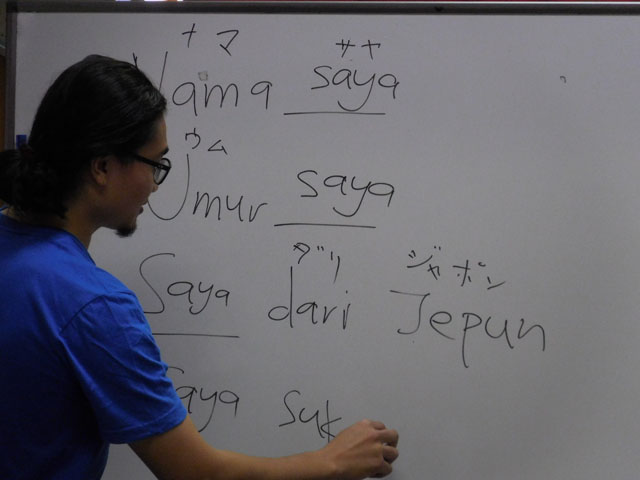 ナマ サヤ
Nama saya
ウム
Umur saya
ダリ ジャポン
Saya dari Jepun
Saya suk